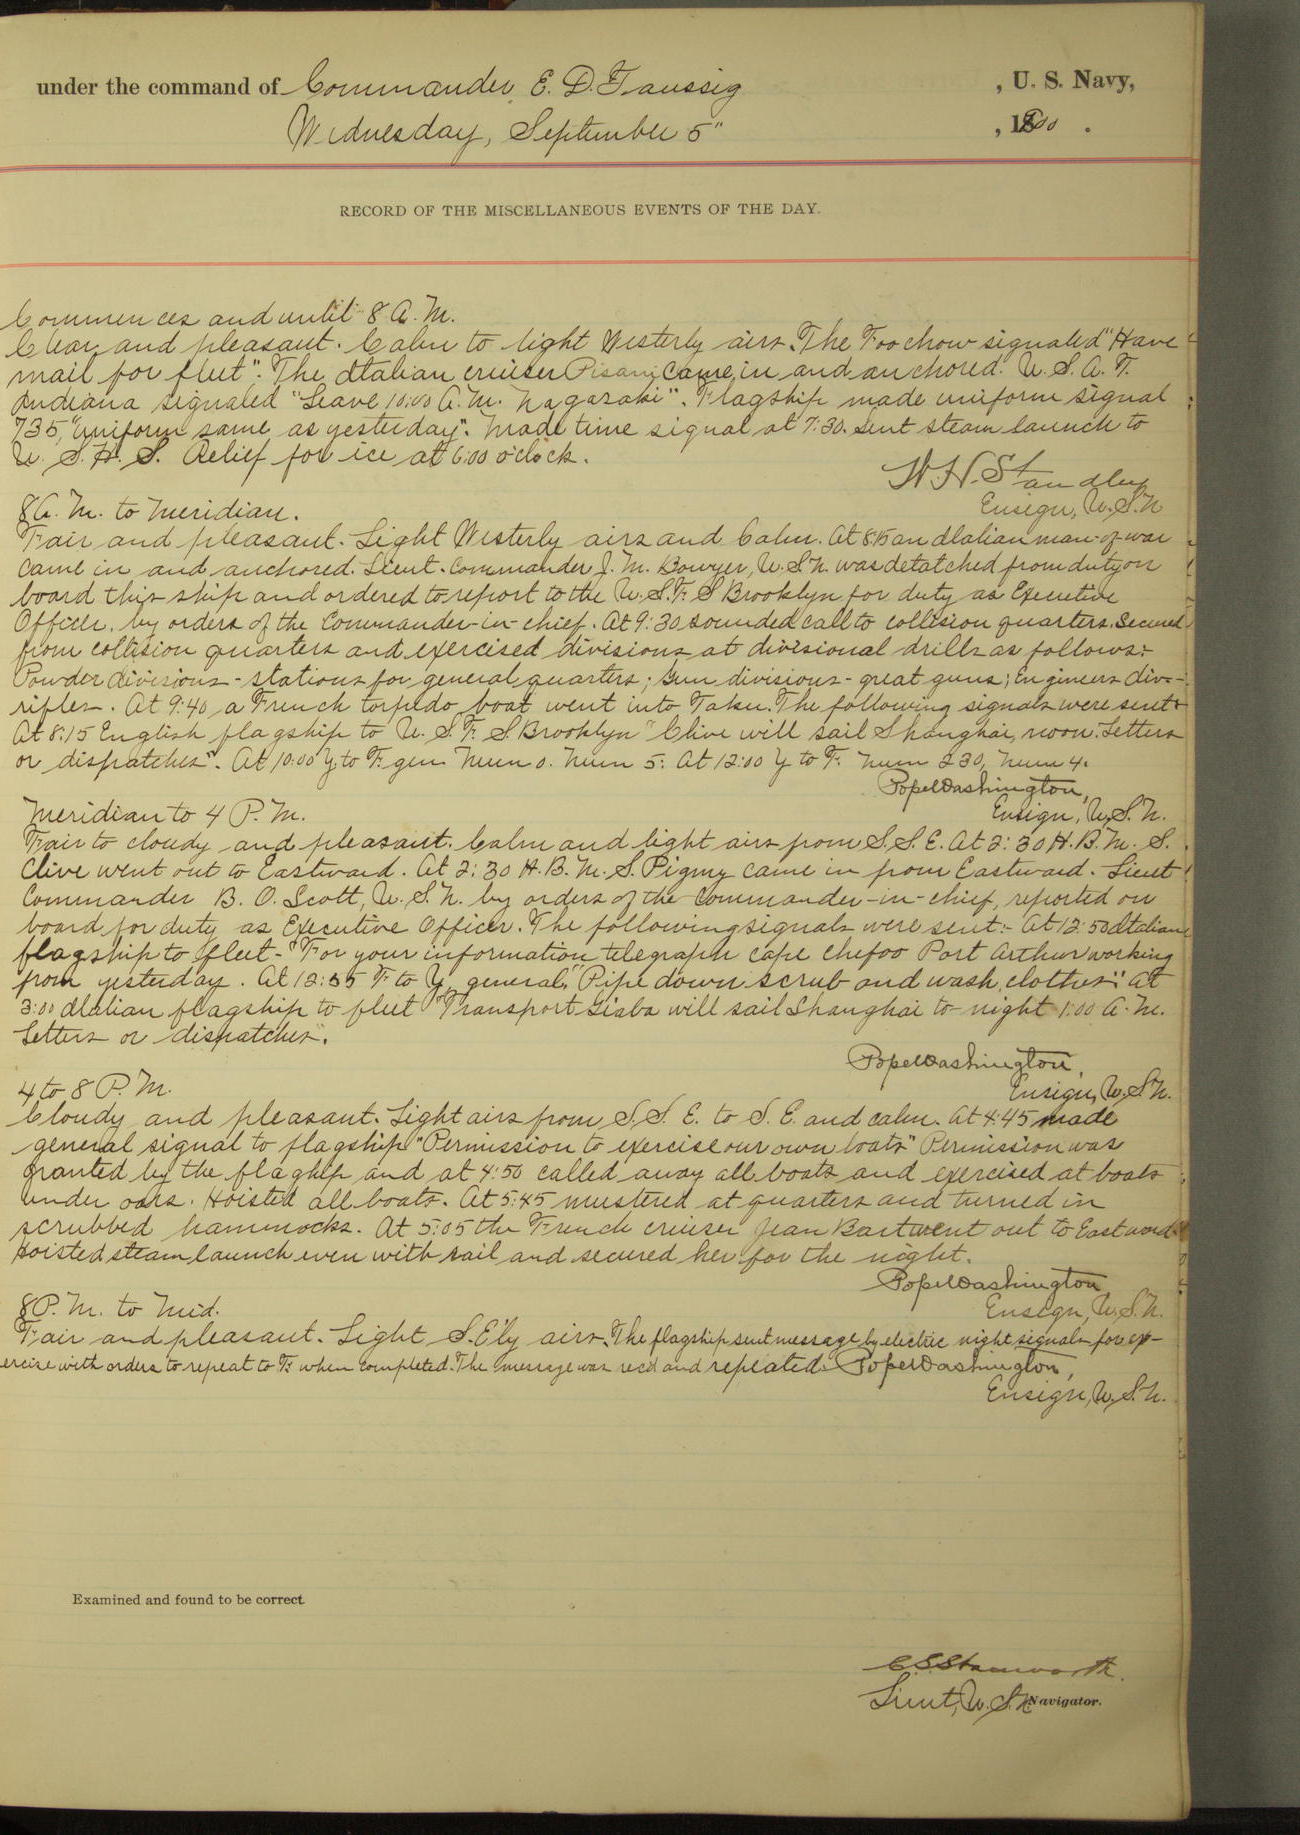 under the command of Commander E. D. Taussig, U. S. Navy,
Wednesday, September 5", 1900.
RECORD OF THE MISCELLANEOUS EVENTS OF THE DAY.
Commences and until 8 A. M.
Clear and pleasant. Calm to light Westerly airs. The Foochow signaled "Have
mail for fleet". The Italian cruiser Pisani came in and anchored. U. S. A. T.
Indiana signaled "Leave 10:00 A. M. Nagasaki". Flagship made uniform signal
735, "uniform same as yesterday". Made time signal at 7:30. Sent steam launch to
U. S. H. S. Relief for ice at 6:00 o'clock.
W H. Standley
Ensign, U. S. N
8 A. M. to Meridian.
Fair and pleasant. Light Westerly airs and Calm. At 8:15 an Italian man-of-war
came in and anchored. Lieut. Commander J. M. Bowyer, U. S. N. was detatched from duty on
board this ship and ordered to report to the U. S. F. S Brooklyn for duty as Executive
Officer, by orders of the Commander-in-chief. At 9:30 sounded call to collision quarters. Secured
from collision quarters and exercised divisions at divisional drills as follows:-
Powder divisions - stations for general quarters; Gun divisions - great guns; Engineers div.-
rifles. At 9:40 a French torpedo boat went into Taku. The following signals were sent:
At 8:15 English flagship to U. S. F. S. Brooklyn "Clive will sail Shanghai, noon. Letters
or dispatches". At 10:00 Y to F. gen. Num 0. Num 5. At 12:00 Y to F. Num 230, Num 4.
Pope Washington,
Ensign, U. S. N.
Meridian to 4 P. M.
Fair to cloudy and pleasant. Calm and light airs from S. S. E. At 2:30 H. B. M. S.
Clive went out to Eastward. At 2:30 H. B. M. S. Pigmy came in from Eastward. Lieut
Commander B. O. Scott, U. S. N. by orders of the Commander-in-chief, reported on
board for duty as Executive Officer. The following signals were sent:- At 12:50 Italian
flagship to fleet - "For your information telegraph cape Chefoo Port Arthur working
from yesterday. At 12:55 F to Y general, "Pipe down scrub and wash clothes". At
3:00 Italian flagship to fleet "Transport Giaba will sail Shanghai to-night 1:00 A. M.
Letters or dispatches".
Pope Washington,
Ensign, U. S. N.
4 to 8 P. M.
Cloudy and pleasant. Light airs from S. S. E. to S. E. and calm. At 4:45 made
general signal to flagship "Permission to exercise our own boats" Permission was
granted by the flaghip and at 4:50 called away all boats and exercised at boats
under oars. Hoisted all boats. At 5:45 mustered at quarters and turned in
scrubbed hammocks. At 5:05 the French cruiser Jean Bart went out to Eastward.
Hoisted steam launch even with rail and secured her for the night.
Pope Washington
Ensign, U. S. N.
8 P. M. to Mid.
Fair and pleasant. Light S. E'ly airs. The flagship sent message by electric night signals for ex-
ercise with orders to repeat to F. when completed. The message was rec'd and repeated. Pope Washington,
Ensign, U. S. N.
Examined and found to be correct
Lieut, U. S. N. Navigator.